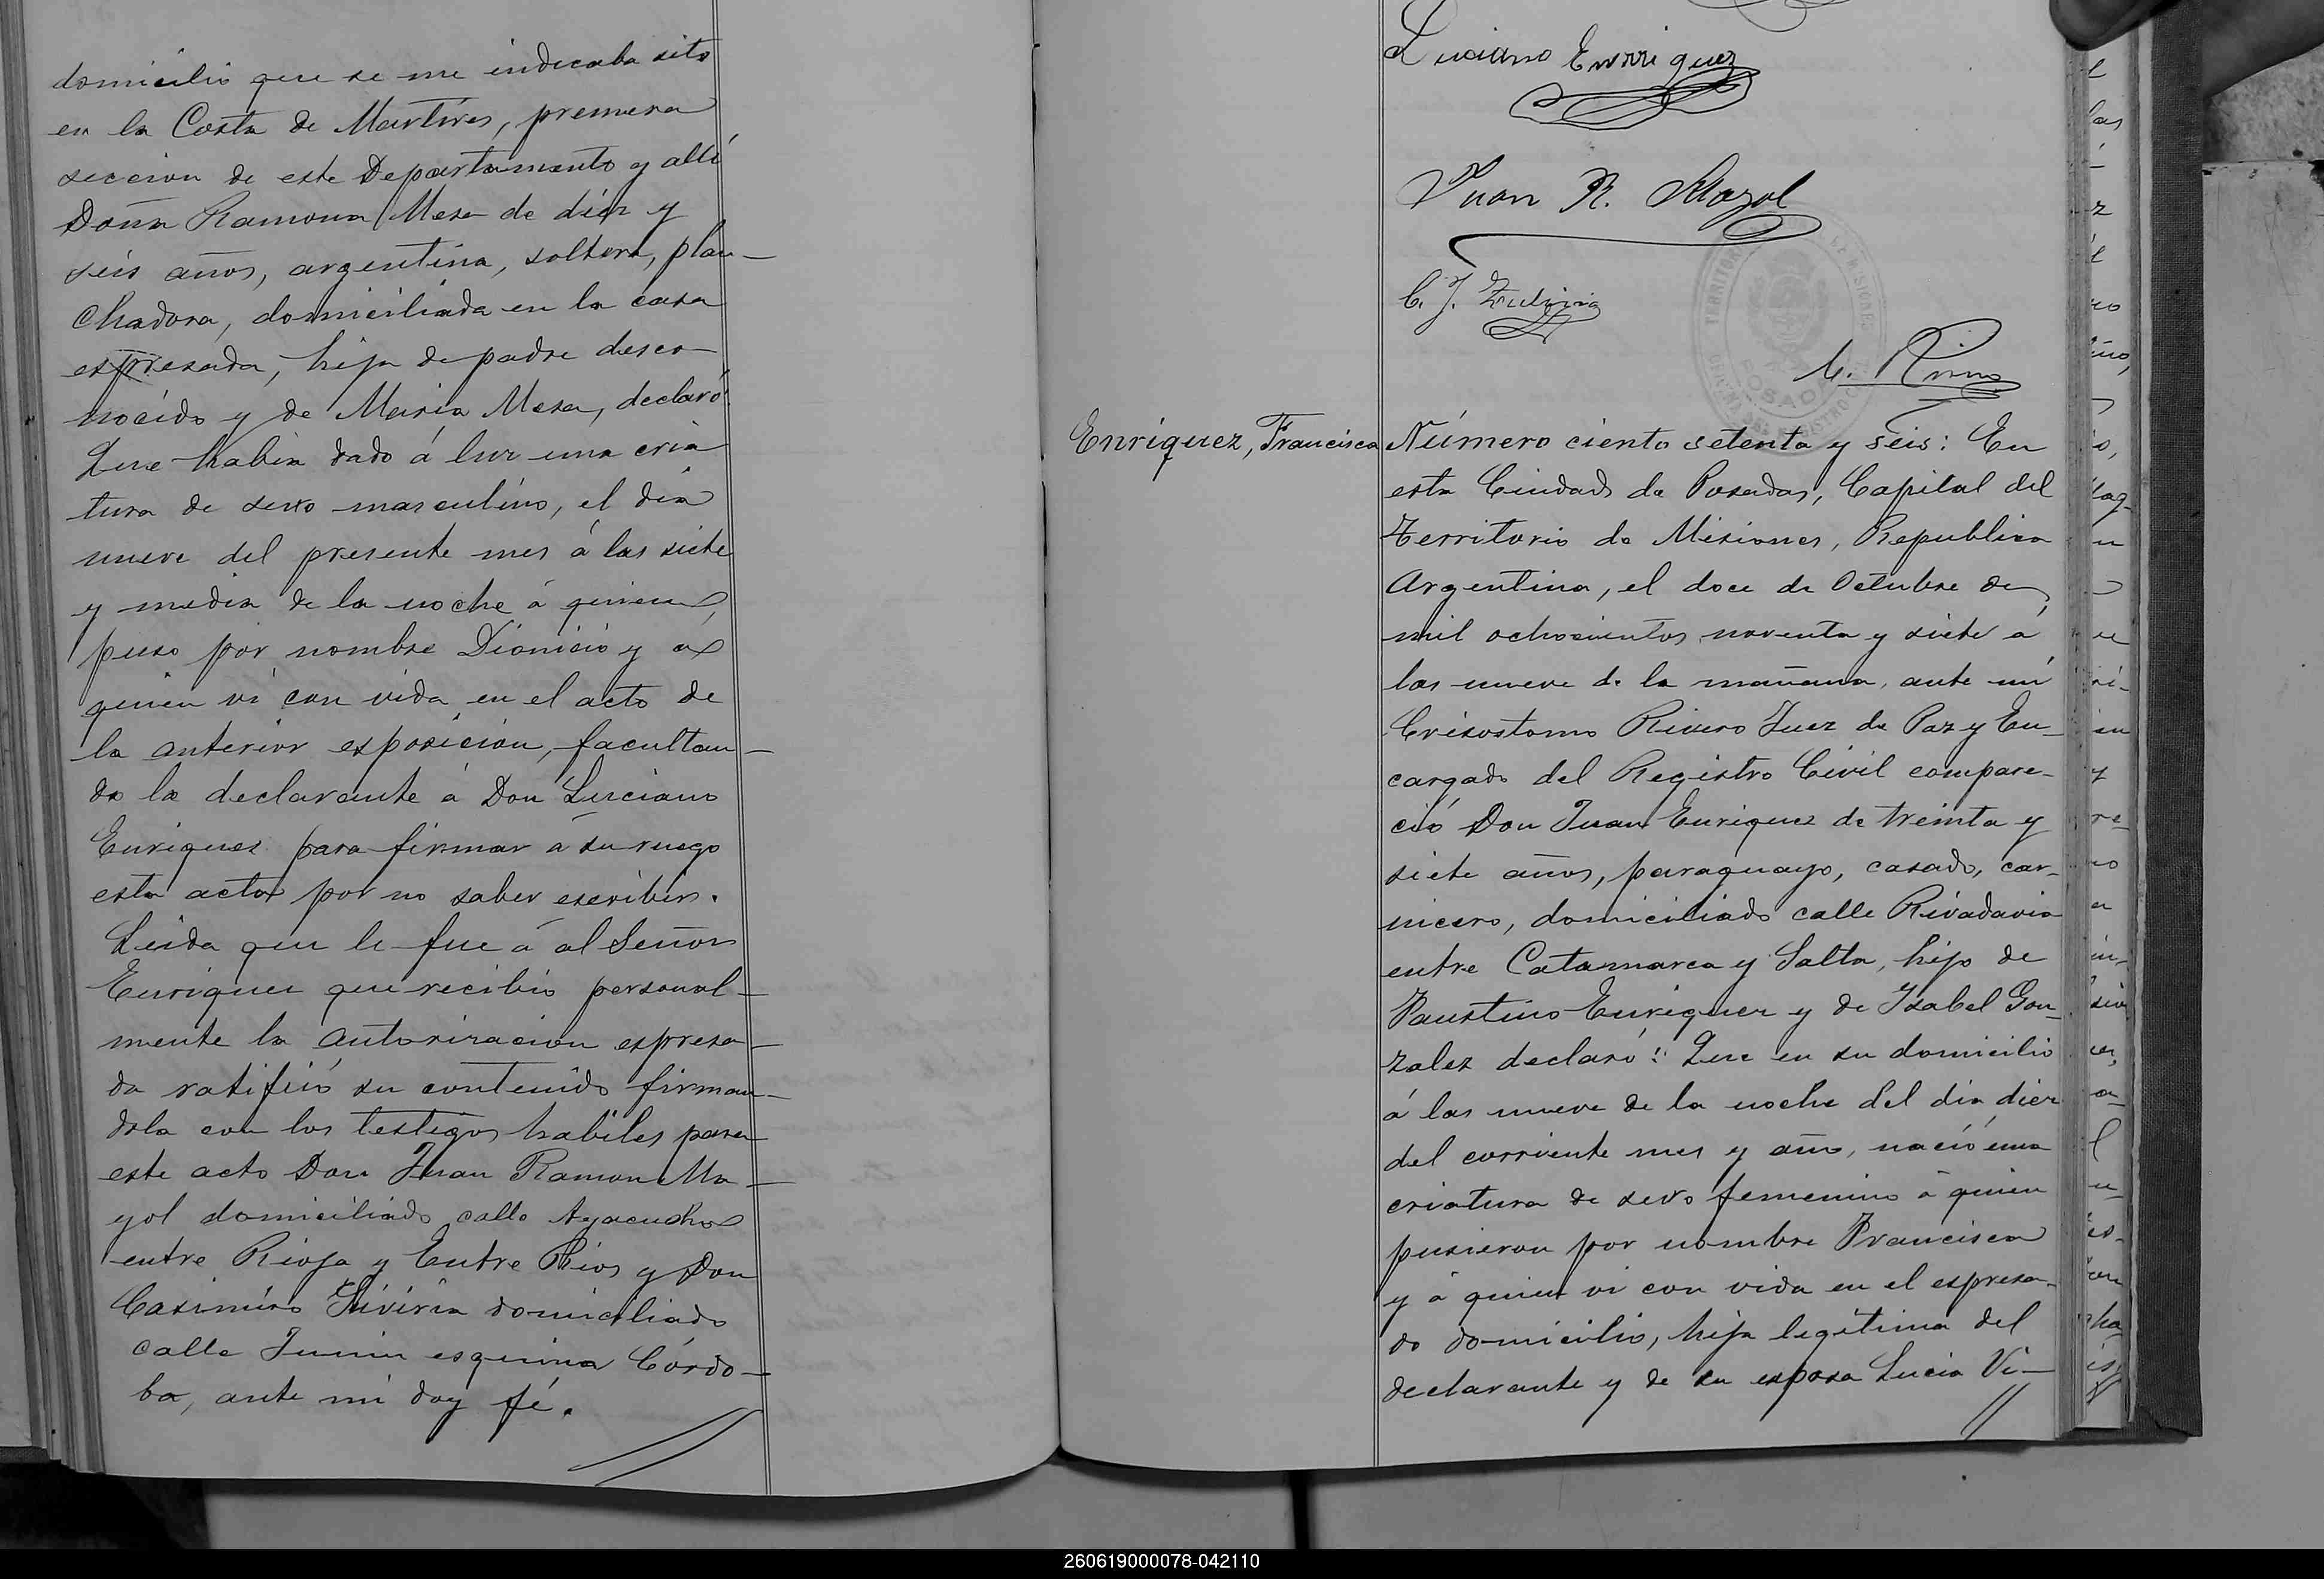 domicilio que se me indicaba sito
en la Costa de Martires, primera
seccion de este Departamento y allí
Doña Ramona Mesa de diez y
seis años, argentina, soltera, plan-
chadora, domiciliada en la casa
espresada, hija de padre desco-
nocido y de Maria Mesa, declaró
Que habia dado á luz una cria
tura de sexo masculino, el dia
nueve del presente mes á las siete
y media de la noche á quien
puso por nombre Dionicio y á
quien ví con vida en el acto de
la anterior esposicion, facultan-
do la declarante á Don Luciano
Enriquez para firmar á su ruego
esta acta por no saber escribir.
Leida que le fue á al Señor
Enriquez que recibió personal-
mente la autorizacion espresa-
da ratificó su contenido firman-
dola con los testigos habiles para
este acto Don Juan Ramon Ma-
yol domiciliado calle Ayacucho
entre Rioja y Entre Rios y Don
Casimiro domiciliado
calle Junin esquina Córdo-
ba, ante mi doy fé.
Luciano Enrriquez
Juan R. Mayol
C. J.
C. Rivero
TERRITORIO DE MISIONES
POSADAS
Enriquez, Francisca
Número ciento setenta y seis: En
esta Ciudad de Posadas, Capital del
Territorio de Misiones, Republica
Argentina, el doce de Octubre de
mil ochocientos noventa y siete á
las nueve de la mañana, ante mí
Crisostomo Rivero Juez de Paz y En-
cargado del Registro Civil compare-
ció Don Juan Enriquez de treinta y
siete años, paraguayo, casado, car-
nicero, domiciliado calle Rivadavia
entre Catamarca y Salta, hijo de
Faustino Enriquez y de Isabel Gon-
zalez declaró: Que en su domicilio
á las nueve de la noche del dia diez
del corriente mes y año, nació una
criatura de sexo femenino á quien
pusieron por nombre Francisca
y á quien vi con vida en el espresa-
do domicilio, hija legítima del
declarante y de su esposa Lucia Vi-
260619000078-042110